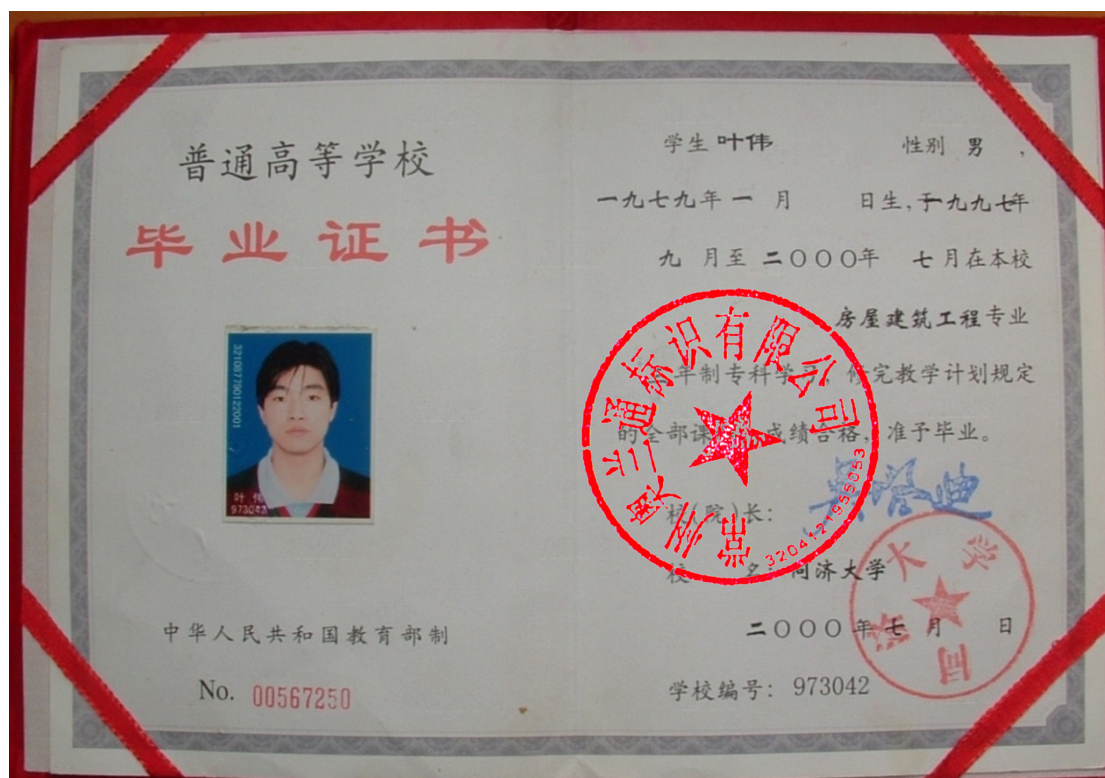 普通高等学校
毕业证书
叶 伟
973042
中华人民共和国教育部制
No. 00567250
学生 叶伟 性别 男,
一九七九年 一 月 日生,于一九九七年
九 月至 二〇〇〇年 七 月在本校
房屋建筑工程专业
年制专科学习,修完教学计划规定
的全部课 成绩合格,准予毕业。
校(院)长:
校 名:同济大学
二〇〇〇年七月 日
学校编号:973042
通标识有限公司
3204121955053
同济大学